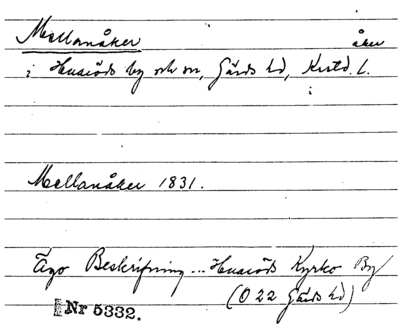 Mellanåker åker
i Huaröds by och sn, Gärds hd, Krstd. L.
Mellanåker 1831.
Ägo Beskrifning... Huaröds Kyrko By
(O 22 Gärds hd)
Nr 5332.